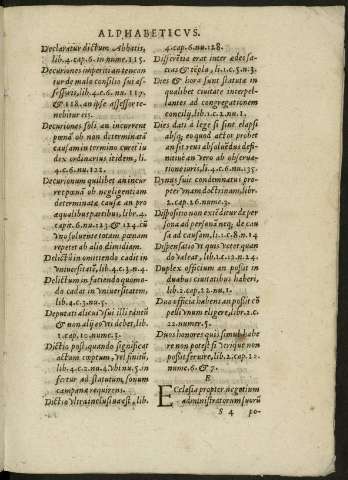 ALPHABETICVS.
Declaratur dictum Abbatis,
lib. 4. cap. 6. in nume. 115.
Decuriones imperiti an tenean
tur de malo consilio sui as-
sessoris, lib. 4. c. 6. nu. 117.
& 118. an ipse assessor te-
nebitur eis.
Decuriones soli, an incurrent
pœnā ob non determinatā
causam in termino curię iu
dex ordinarius itidem, li.
4. c. 6. nu. 122.
Decurionum quilibet an incur
ret pœnā ob negligentiam
determinatæ causæ an pro
æqualibus partibus, lib. 4.
cap. 6. nu. 123 & 124. cū
vno soluente totam pœnam
repetet ab alio dimidiam.
Delictū in omittendo cadit in
vniuersitatē, lib. 4. c. 3. n. 4.
Delictum in faciendo quomo-
do cadat in vniuersitatem,
lib. 4. c. 3. nu. 5.
Deputati alicui vsui illi tantū
& non alij eo vti debet, lib.
1. c. 2. nu. 10.
Dictio post, quando significat
actum cœptum, vel finitū,
lib. 4. c. 2. nu. 4. vbi nu. 5. in
fertur ad statutum, sonum
campanæ requirens.
Dictio vltra inclusiua est, lib.
4. cap. 6. nu. 128.
Differētia erat inter ædes sa-
cras & tēpla, li. 1. c. 5. n. 3.
Dies & hora sunt statutæ in
qualibet ciuitate interpel-
lantes ad congregationem
concilij, lib. 1. c. 2. nu. 1.
Dies dati à lege si sint elapsi
absq; eo quod actor probet
an sit reus absoluēdus defi-
nitiuè an vero ab obserua-
tione iuris, li. 4. c. 6. nu. 135.
Dynus fuit condemnatus pro-
pter vnam doctrinam, lib.
2. cap. 26. nume. 3.
Dispositio non extēditur de per
sona ad personā neq; de cau
sa ad causam, li. 1. c. 8. n. 14
Dispensatio vt quis vvtet quan
do valeat, lib. 1. c. 2. nu. 24.
Duplex officium an possit in
duabus ciuitatibus haberi,
lib. 2. cap. 12. nu. 1.
Duo officia habens an possit cū
pellivnum eligere, lib. 2. c.
22. numer. 5.
Duos honores qui simul habe
re non potest si vtrique non
possit seruire, lib. 2. cap. 12.
nume. 6. & 7.
E
Ecclesia propter negotium
administratorum suorū
S 4 po-